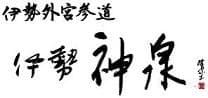 伊勢外宮参道
伊勢 神泉